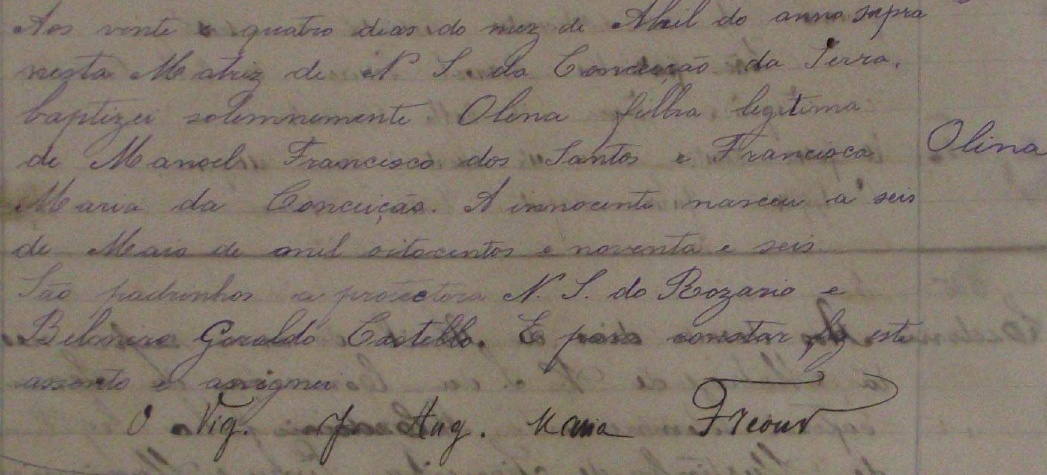 Aos vinte e quatro dias do mez de Abril do anno supra
nesta Matriz de N S da Conceição da Serra,
baptizei solemnemente Olina filha legitima
de Manoel Francisco dos Santos e Francisca
Olina
Maria da Conceição. A innocente nasceu a seis
de Maio de mil oitocentos e noventa e seis
São padrinhos a protectora N. S. do Rozario e
Belmiro Geraldo Castello. E para constar fiz este
assento e assignei
O Vig. Aug. Maria